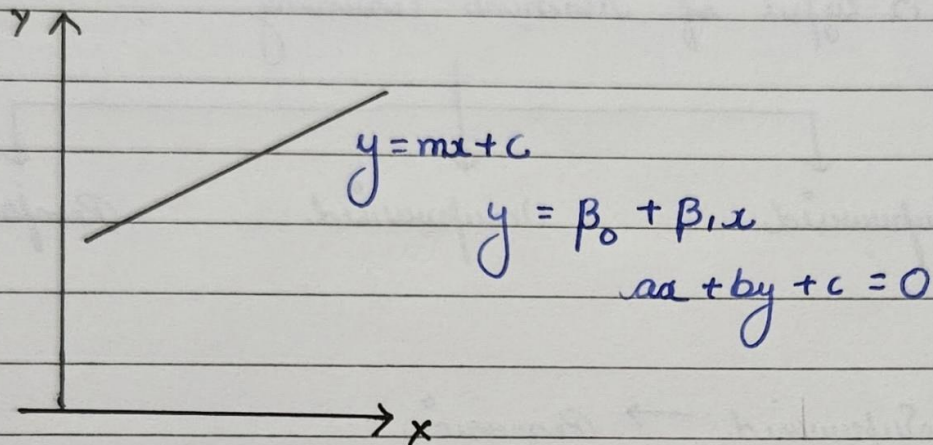 Y
y = mx + c
y = β₀ + β₁x
ax + by + c = 0
X